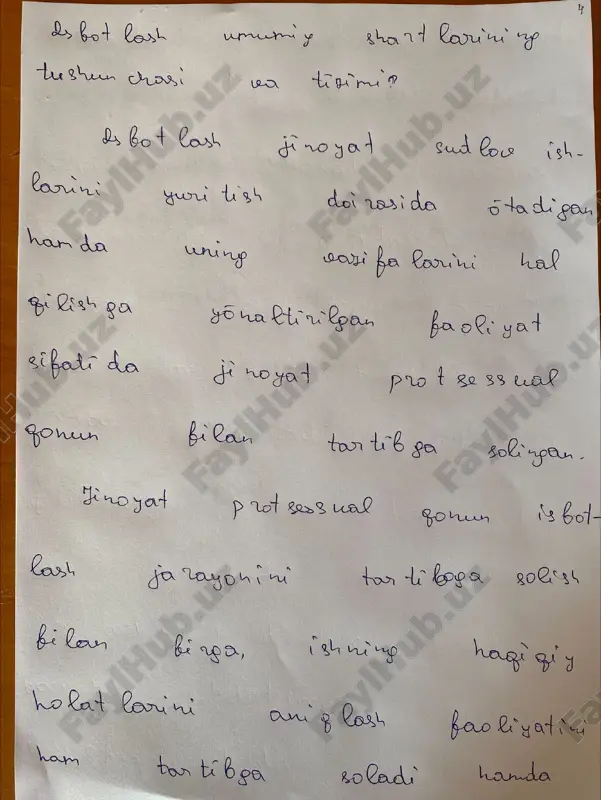 4
Isbotlash umumiy shartlarining
tushunchasi va tizimi?
Isbotlash jinoyat sudlov ish-
larini yuritish doirasida ōtadigan,
hamda uning vazifalarini hal
qilishga yōnaltirilgan faoliyat
sifatida jinoyat protsessual
qonun bilan tartibga solingan.
Jinoyat protsessual qonun isbot-
lash jarayonini tartibga solish
bilan birga, ishning haqiqiy
holatlarini aniqlash faoliyatini
ham tartibga soladi hamda
FaylHub.uz
FaylHub.uz
FaylHub.uz
FaylHub.uz
FaylHub.uz
FaylHub.uz